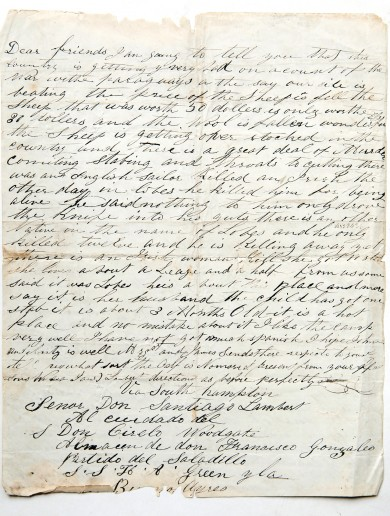 Dear friends I am going to tell you that this
country is getting very bad on account of the
war withe palaguays the say our side is
beating the price of the sheep is fell the
sheep that was worth 50 dollars is only worth
30 dollers and the wool is fallen wonderful
the sheep is getting over stocked in the
country and there is a great deal of Murder
comiting Stabing and throats cutting there
was an English Sailor killed an Irish the
other day in lobos he killed him for being
alive he said nothing to him only drove
the knife into his guts there is an other
native on the name of Lopes and he one
killed twelve and he is killing away yet
there is an woman
she live about a League and a half from us some
said it was Lopes he is about place and more
say it is her and the child has got one
it is about 3 Months Old it is a hot
place and no mistake about it I like the camp
very well I have not got much spanish I hope
is well
direction as before perfectly
Via South hampton
Senor Don Santiago Lambert
Al cuidado del
S Don Cirilo Woodgate
Almacen de don Francisco Gonzales
Partido del Saladillo
Green y la
Ayres